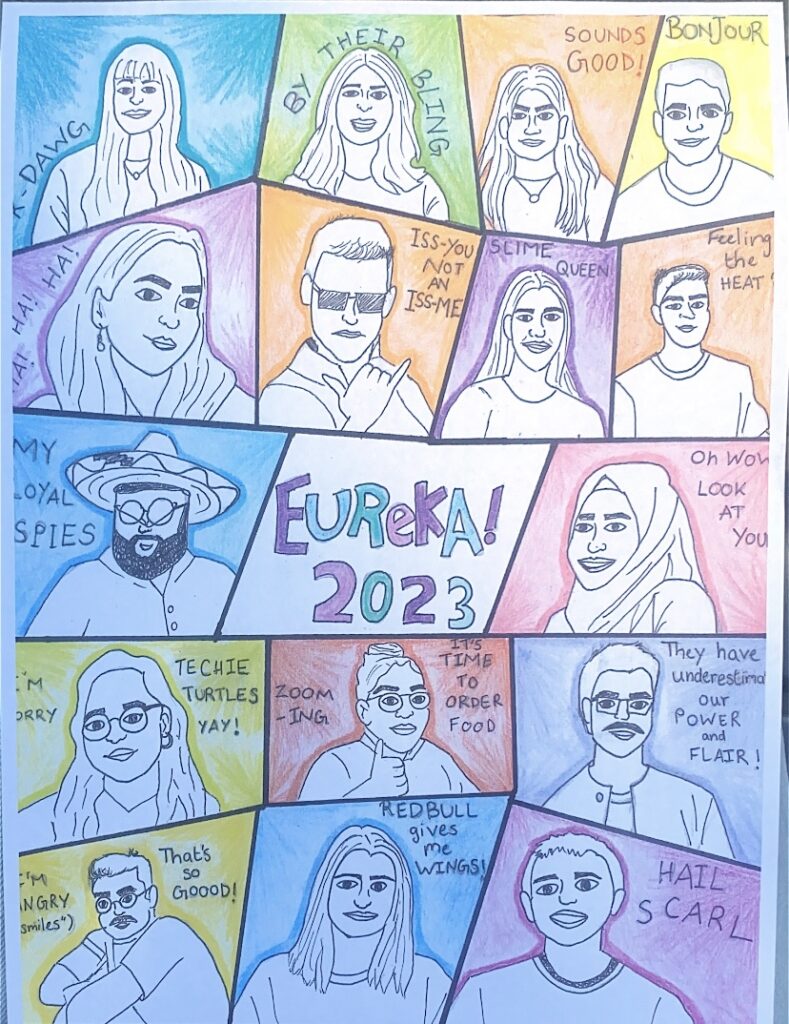 K-DAWG
BY THEIR BLING
SOUNDS
GOOD!
BONJOUR
HA! HA! HA!
ISS-YOU
NOT
AN
ISS-ME
SLIME
QUEEN
Feeling
the
HEAT!
MY
LOYAL
SPIES
EUReKA!
2023
Oh WOW
LOOK
AT
YOU
I'M
ORRY
TECHIE
TURTLES
YAY!
ZOOM
-ING
IT'S
TIME
TO
ORDER
FOOD
They have
underestima
our
POWER
and
FLAIR!
I'M
NGRY
smiles")
That's
so
GOOOD!
REDBULL
gives
me
WINGS!
HAIL
SCARL